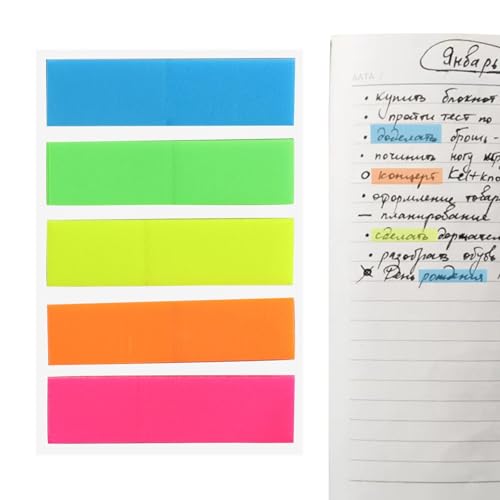 Январь
ДАТА /
• купить блокнот
• пройти тест по
• доделать брошь -
• починить ногу
o концерт
• оформление товар
— планирование
• сделать держател
• разобрать обувь
День рождения